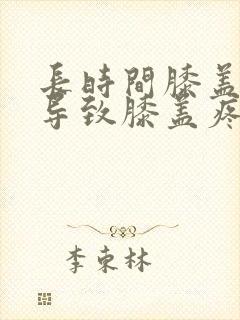 長時間膝蓋
导致膝盖疼
李東林